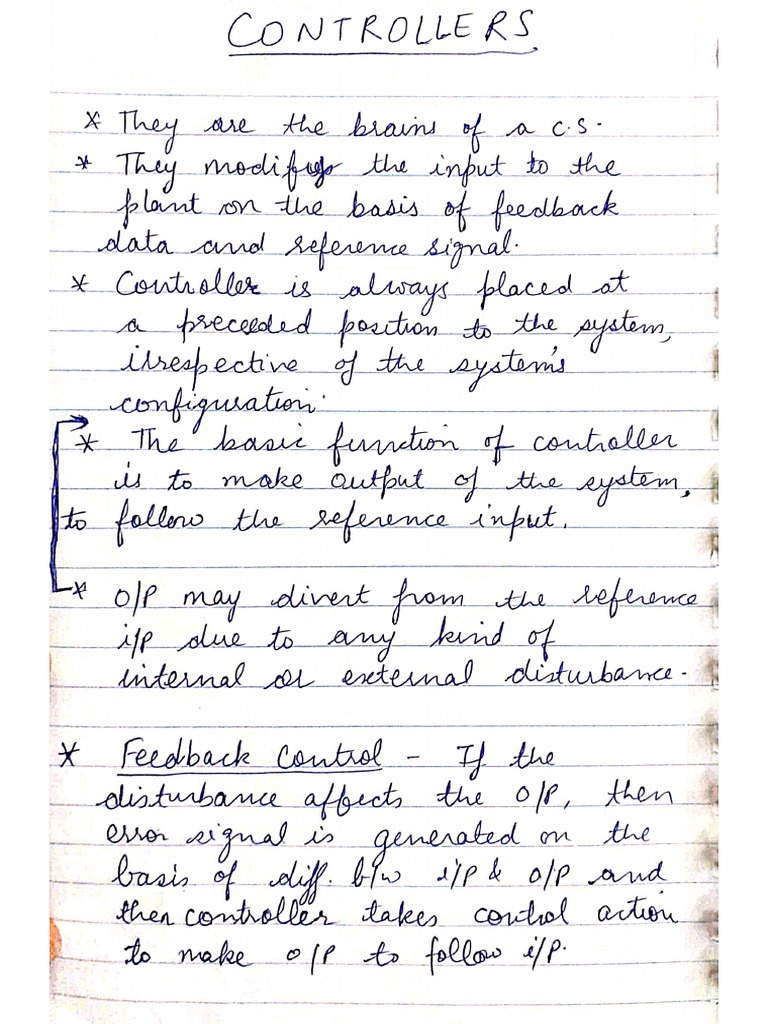 CONTROLLERS
* They are the brains of a c.s.
* They modify the input to the
plant on the basis of feedback
data and reference signal.
* Controller is always placed at
a preceeded position to the system,
irrespective of the system's
configuration.
* The basic function of controller
is to make output of the system,
to follow the reference input.
* O/P may divert from the reference
i/p due to any kind of
internal or external disturbance.
* Feedback Control - If the
disturbance affects the O/P, then
error signal is generated on the
basis of diff. b/w i/p & o/p and
then controller takes control action
to make o/p to follow i/p.